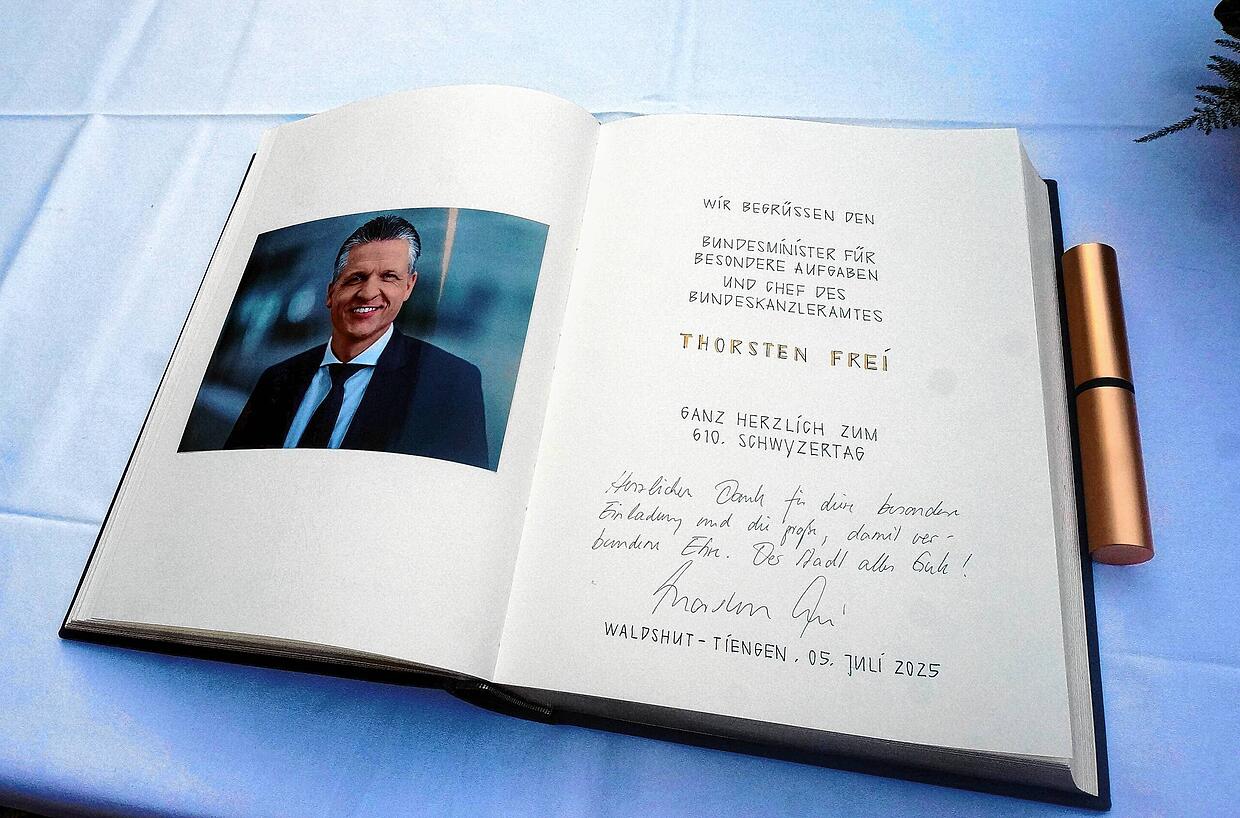 WIR BEGRÜSSEN DEN
BUNDESMINISTER FÜR
BESONDERE AUFGABEN
UND CHEF DES
BUNDESKANZLERAMTES
THORSTEN FREI
GANZ HERZLICH ZUM
610. SCHWYZERTAG
Herzlichen Dank für diese besondere
Einladung und die große, damit ver-
bundene Ehre. Der Stadt alles Gute!
Thorsten Frei
WALDSHUT-TIENGEN, 05. JULI 2025